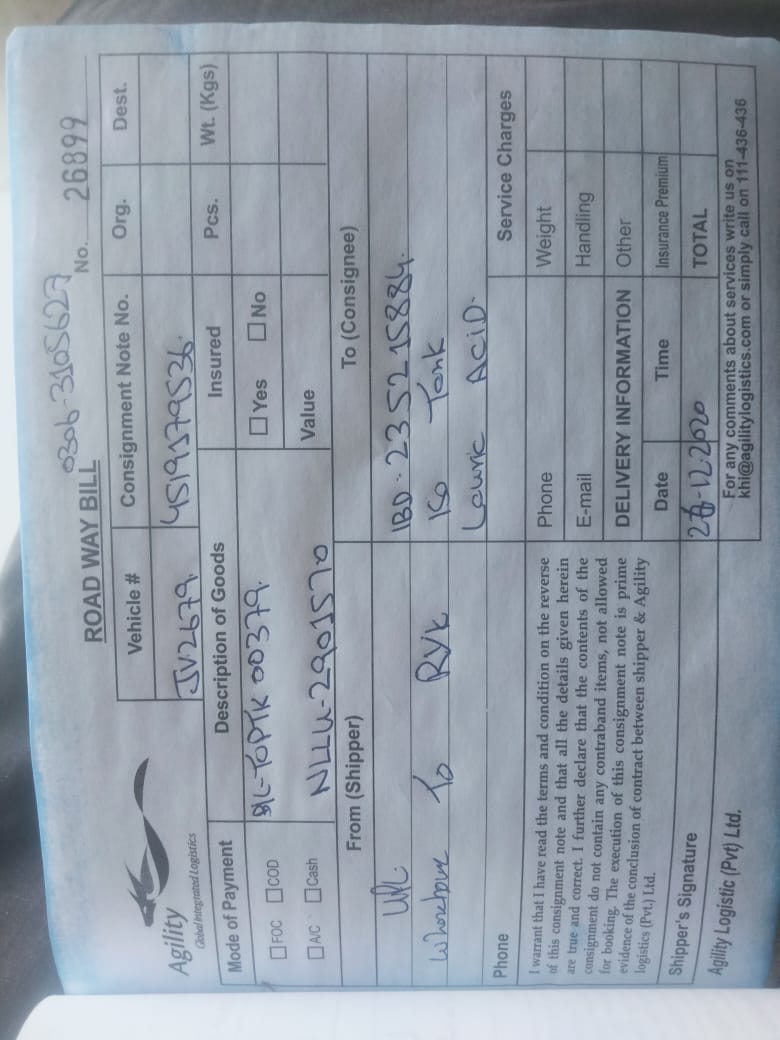 0306-3105627
ROAD WAY BILL
No. 26899
Agility
Global Integrated Logistics
Vehicle #
Consignment Note No.
Org.
Dest.
JV.2679.
4519179536.
Mode of Payment
Description of Goods
Insured
Pcs.
Wt. (Kgs)
FOC COD
A/C Cash
B/L-TOPTK 00379.
NLLU-2901570
Yes No
Value
From (Shipper)
To (Consignee)
UPL
IBD. 235215884.
To RYK
ISO Tank
Lauric ACiD.
Phone
Service Charges
I warrant that I have read the terms and condition on the reverse
of this consignment note and that all the details given herein
are true and correct. I further declare that the contents of the
consignment do not contain any contraband items, not allowed
for booking. The execution of this consignment note is prime
evidence of the conclusion of contract between shipper & Agility
logistics (Pvt.) Ltd.
Phone
Weight
E-mail
Handling
DELIVERY INFORMATION
Other
Date
Time
Insurance Premium
Shipper's Signature
-12.2020
TOTAL
Agility Logistic (Pvt) Ltd.
For any comments about services write us on
khi@agilitylogistics.com or simply call on 111-436-436